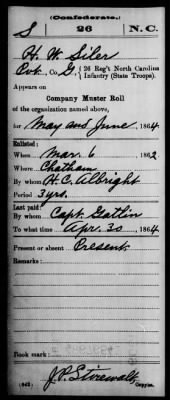 (Confederate.)
S 26 N.C.
H. W. Siler
Pvt., Co. G, 26 Reg't North Carolina
Infantry (State Troops).
Appears on
Company Muster Roll
of the organization named above,
for May and June, 1864
Enlisted:
When Mar. 6, 1862
Where Chatham
By whom H. C. Albright
Period 3 yrs.
Last paid:
By whom Capt. Gatlin
To what time Apr. 30, 1864
Present or absent Present
Remarks:
Book mark:
(642) J. P. Stirewalt
Copyist.